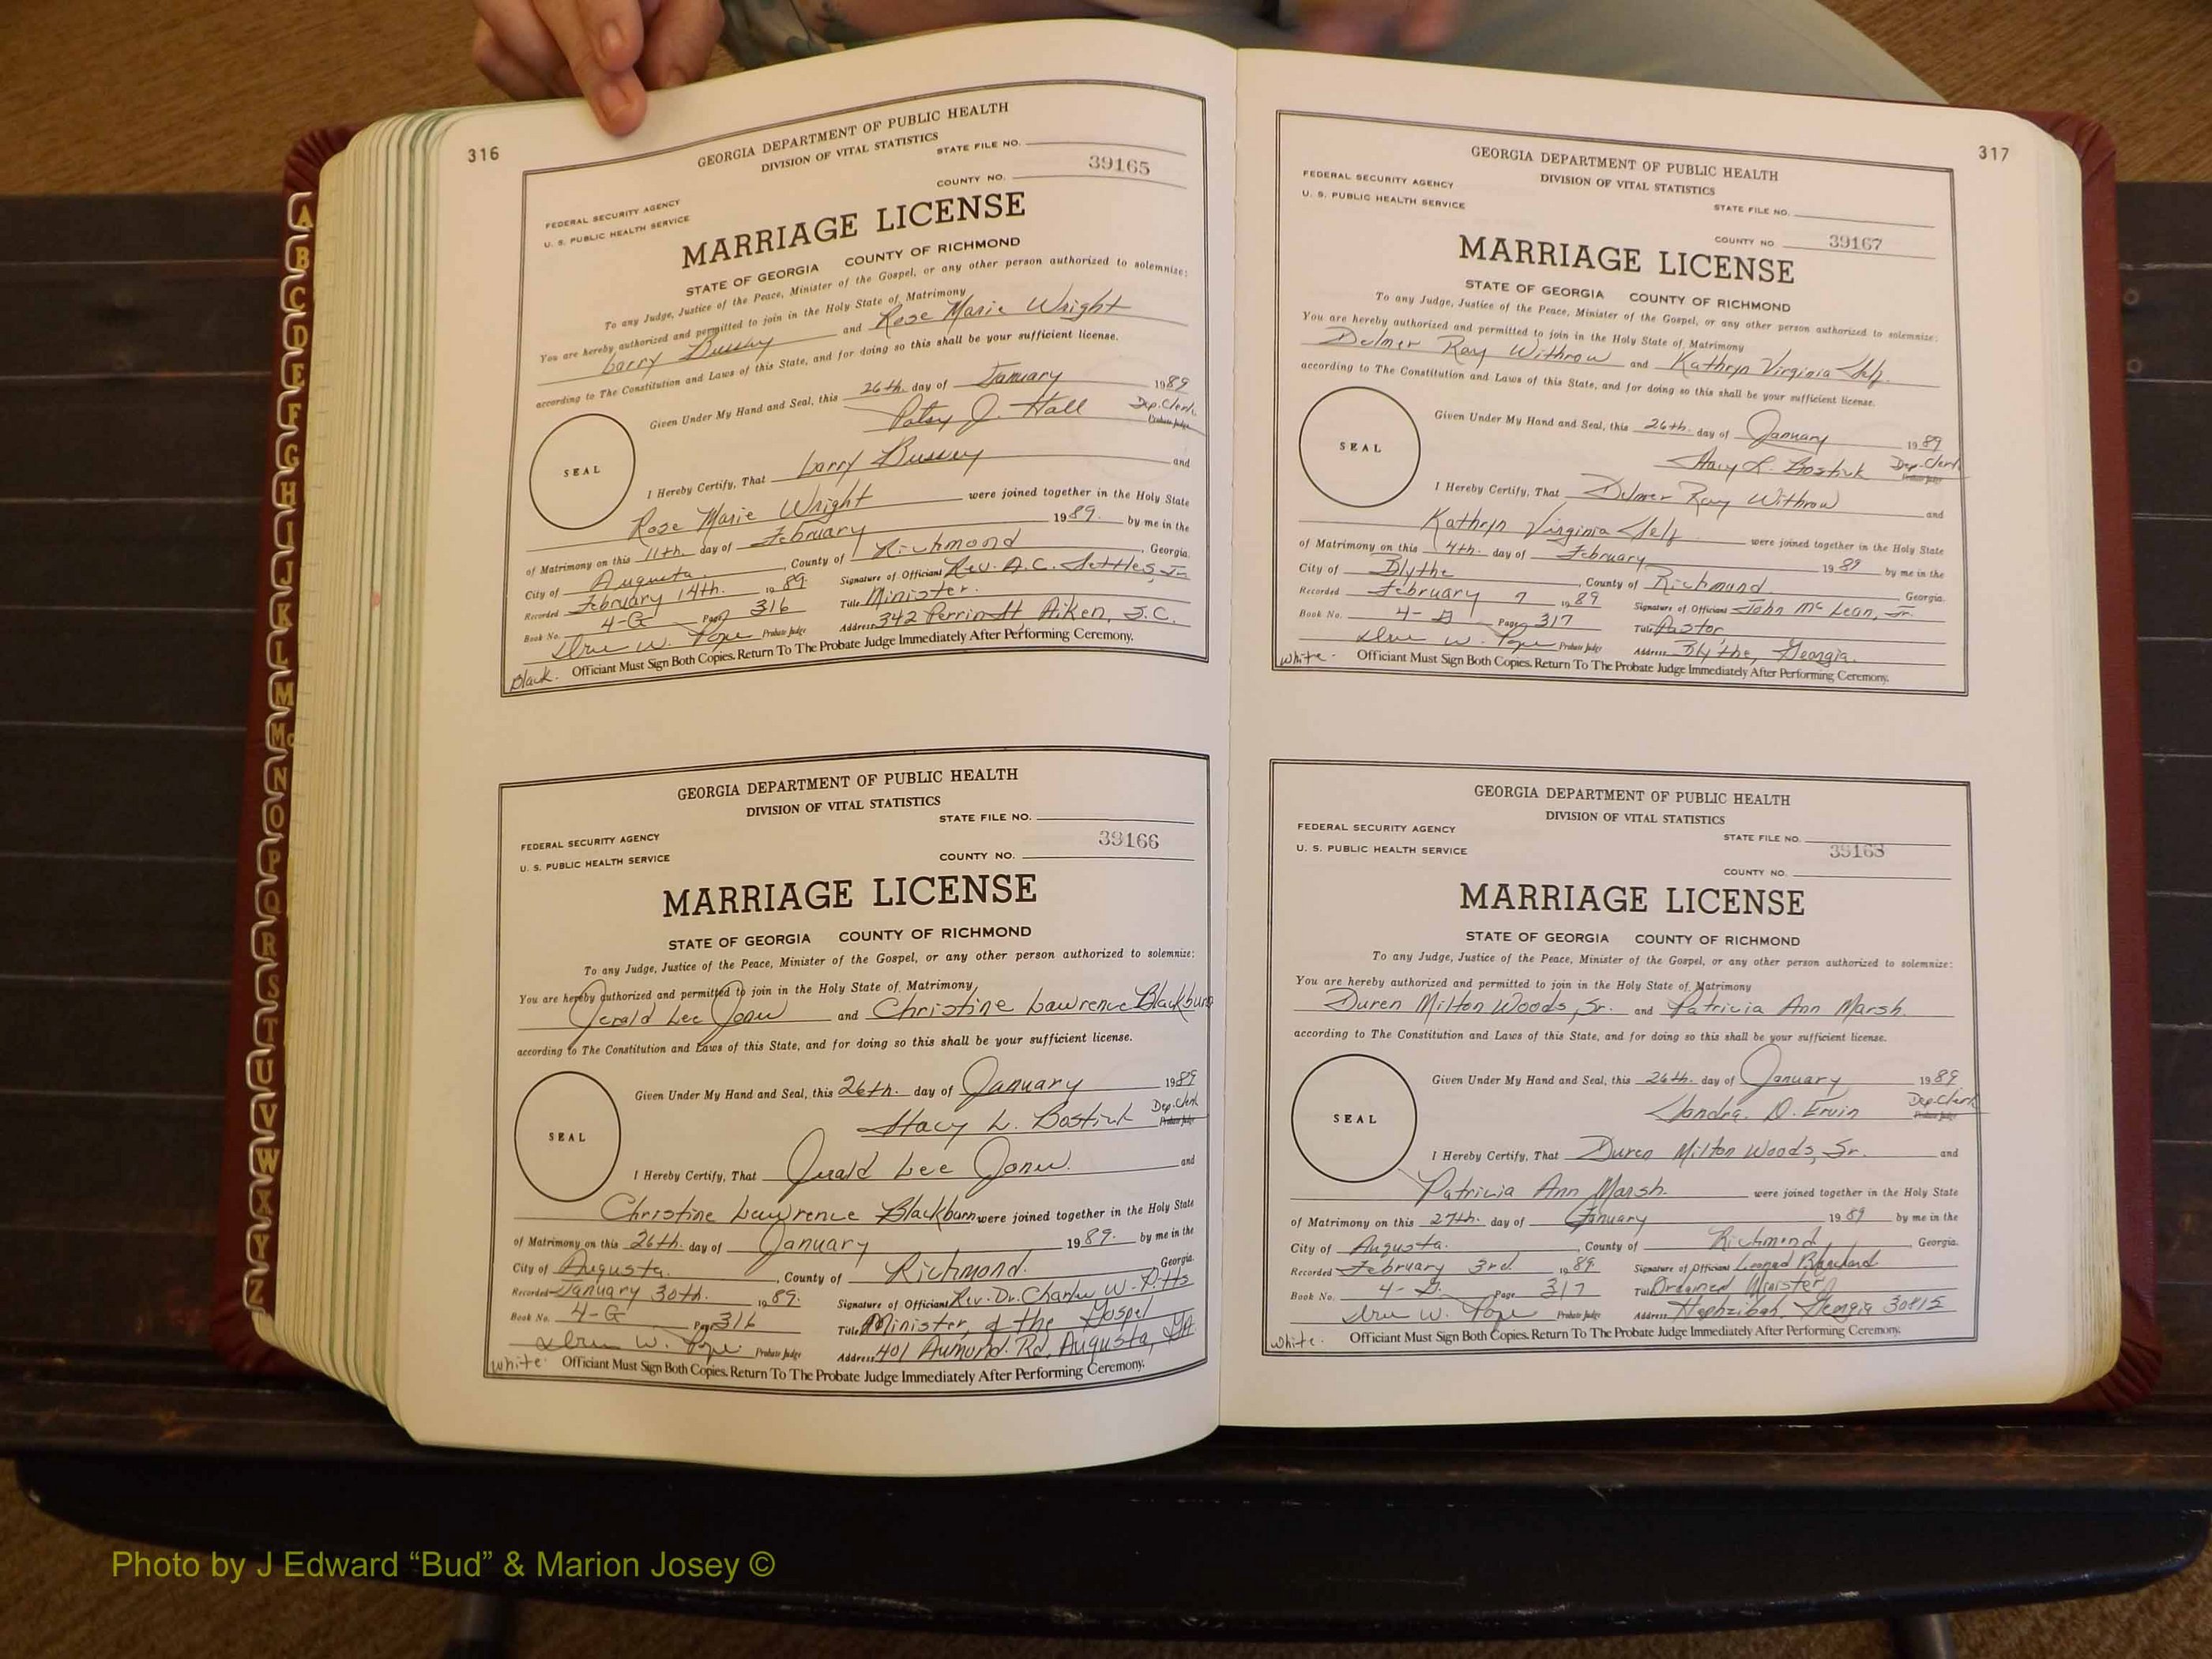 316
GEORGIA DEPARTMENT OF PUBLIC HEALTH
DIVISION OF VITAL STATISTICS
STATE FILE NO.
39165
COUNTY NO.
FEDERAL SECURITY AGENCY
U. S. PUBLIC HEALTH SERVICE
MARRIAGE LICENSE
STATE OF GEORGIA COUNTY OF RICHMOND
To any Judge, Justice of the Peace, Minister of the Gospel, or any other person authorized to solemnize:
You are hereby authorized and permitted to join in the Holy State of Matrimony
Larry Bussey and Rose Marie Wright
according to The Constitution and Laws of this State, and for doing so this shall be your sufficient license.
Given Under My Hand and Seal, this 26th. day of January 1989
Patsy J. Hall Dep. Clerk
Probate Judge
SEAL
I Hereby Certify, That Larry Bussey and
Rose Marie Wright were joined together in the Holy State
of Matrimony on this 11th. day of February 1989. by me in the
City of Augusta. , County of Richmond , Georgia.
Recorded February 14th. 1989. Signature of Officiant Rev. A.C. Settles, Jr.
Book No. 4-G Page 316 Title Minister.
W. Pope Probate Judge Address 342 Perrin St Aiken, S.C.
Black. Officiant Must Sign Both Copies. Return To The Probate Judge Immediately After Performing Ceremony.
GEORGIA DEPARTMENT OF PUBLIC HEALTH
DIVISION OF VITAL STATISTICS
STATE FILE NO.
39166
FEDERAL SECURITY AGENCY
U. S. PUBLIC HEALTH SERVICE
COUNTY NO.
MARRIAGE LICENSE
STATE OF GEORGIA COUNTY OF RICHMOND
To any Judge, Justice of the Peace, Minister of the Gospel, or any other person authorized to solemnize:
You are hereby authorized and permitted to join in the Holy State of Matrimony
Jerald Lee Jones and Christine Lawrence Blackburn
according to The Constitution and Laws of this State, and for doing so this shall be your sufficient license.
Given Under My Hand and Seal, this 26th. day of January 1989
Stacy L. Bostick Dep. Clerk
Probate Judge
SEAL
I Hereby Certify, That Jerald Lee Jones. and
Christine Lawrence Blackburn were joined together in the Holy State
of Matrimony on this 26th. day of January 1989. by me in the
City of Augusta. , County of Richmond. Georgia.
Recorded January 30th. 1989. Signature of Officiant Rev. Dr. Charles W. Pitts
Book No. 4-G Page 316 Title Minister, of the Gospel
W. Pope Probate Judge Address 401 Aumond. Rd, Augusta, GA
White. Officiant Must Sign Both Copies. Return To The Probate Judge Immediately After Performing Ceremony.
317
GEORGIA DEPARTMENT OF PUBLIC HEALTH
DIVISION OF VITAL STATISTICS
FEDERAL SECURITY AGENCY
U. S. PUBLIC HEALTH SERVICE
STATE FILE NO.
COUNTY NO 39167
MARRIAGE LICENSE
STATE OF GEORGIA COUNTY OF RICHMOND
To any Judge, Justice of the Peace, Minister of the Gospel, or any other person authorized to solemnize:
You are hereby authorized and permitted to join in the Holy State of Matrimony
Delmer Ray Withrow and Kathryn Virginia Self.
according to The Constitution and Laws of this State, and for doing so this shall be your sufficient license.
Given Under My Hand and Seal, this 26th. day of January 1989
Stacy L. Bostick Dep. Clerk
Probate Judge
SEAL
I Hereby Certify, That Delmer Ray Withrow and
Kathryn Virginia Self were joined together in the Holy State
of Matrimony on this 4th. day of February 1989 by me in the
City of Blythe , County of Richmond Georgia.
Recorded February 7 1989 Signature of Officiant John McLean, Jr.
Book No. 4-G Page 317 Title Pastor
W. Pope Probate Judge Address Blythe, Georgia.
White. Officiant Must Sign Both Copies. Return To The Probate Judge Immediately After Performing Ceremony.
GEORGIA DEPARTMENT OF PUBLIC HEALTH
DIVISION OF VITAL STATISTICS
FEDERAL SECURITY AGENCY
U. S. PUBLIC HEALTH SERVICE
STATE FILE NO.
39168
COUNTY NO.
MARRIAGE LICENSE
STATE OF GEORGIA COUNTY OF RICHMOND
To any Judge, Justice of the Peace, Minister of the Gospel, or any other person authorized to solemnize:
You are hereby authorized and permitted to join in the Holy State of Matrimony
Duren Milton Woods, Sr. and Patricia Ann Marsh.
according to The Constitution and Laws of this State, and for doing so this shall be your sufficient license.
Given Under My Hand and Seal, this 26th. day of January 1989
Sandra. D. Ervin Dep. Clerk
Probate Judge
SEAL
I Hereby Certify, That Duren Milton Woods, Sr. and
Patricia Ann Marsh. were joined together in the Holy State
of Matrimony on this 27th. day of January 1989 by me in the
City of Augusta. , County of Richmond , Georgia.
Recorded February 3rd 1989 Signature of Officiant Leonard Blanchard
Book No. 4-G. Page 317 Title Ordained Minister
W. Pope Probate Judge Address Hephzibah, Georgia 30815
White. Officiant Must Sign Both Copies. Return To The Probate Judge Immediately After Performing Ceremony.
A
B
C
D
E
F
G
H
I
J
K
L
M
Mc
N
O
P
Q
R
S
T
U
V
W
X
Y
Z
Photo by J Edward “Bud” & Marion Josey ©